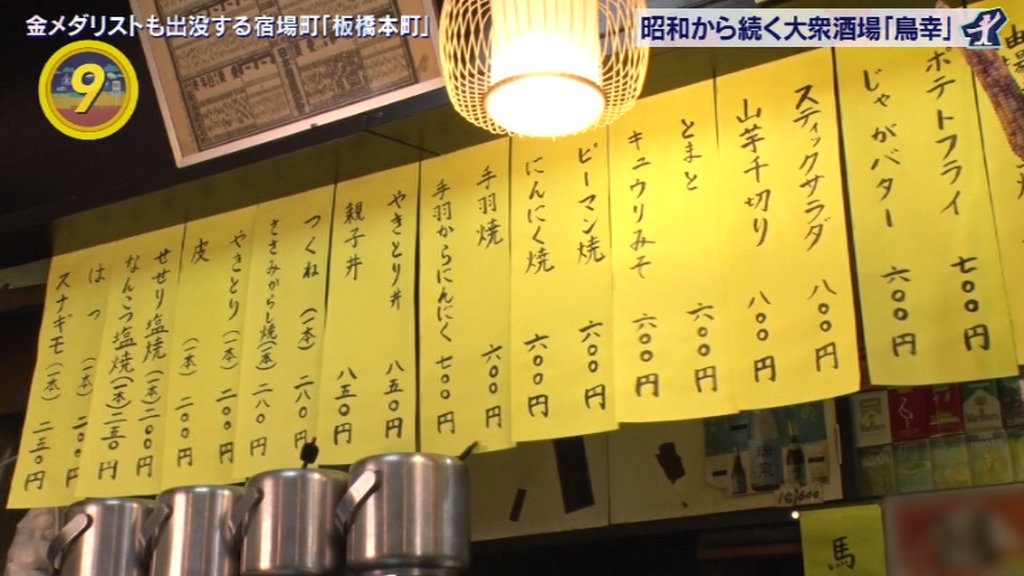 金メダリストも出没する宿場町「板橋本町」
昭和から続く大衆酒場「鳥幸」
9
ポテトフライ 七〇〇円
じゃがバター 六〇〇円
スティックサラダ 八〇〇円
山芋千切り 八〇〇円
とまと 六〇〇円
キュウリみそ 六〇〇円
ピーマン焼 六〇〇円
にんにく焼 六〇〇円
手羽焼 六〇〇円
手羽からにんにく 七〇〇円
やきとり丼 八五〇円
親子丼 八五〇円
つくね(一本) 二六〇円
ささみからし焼(一本) 二八〇円
やきとり(一本) 二〇〇円
皮(一本) 二〇〇円
せせり塩焼(一本) 二〇〇円
なんこつ塩焼(一本) 二五〇円
はつ(一本) 二〇〇円
スナギモ(一本) 二五〇円
馬